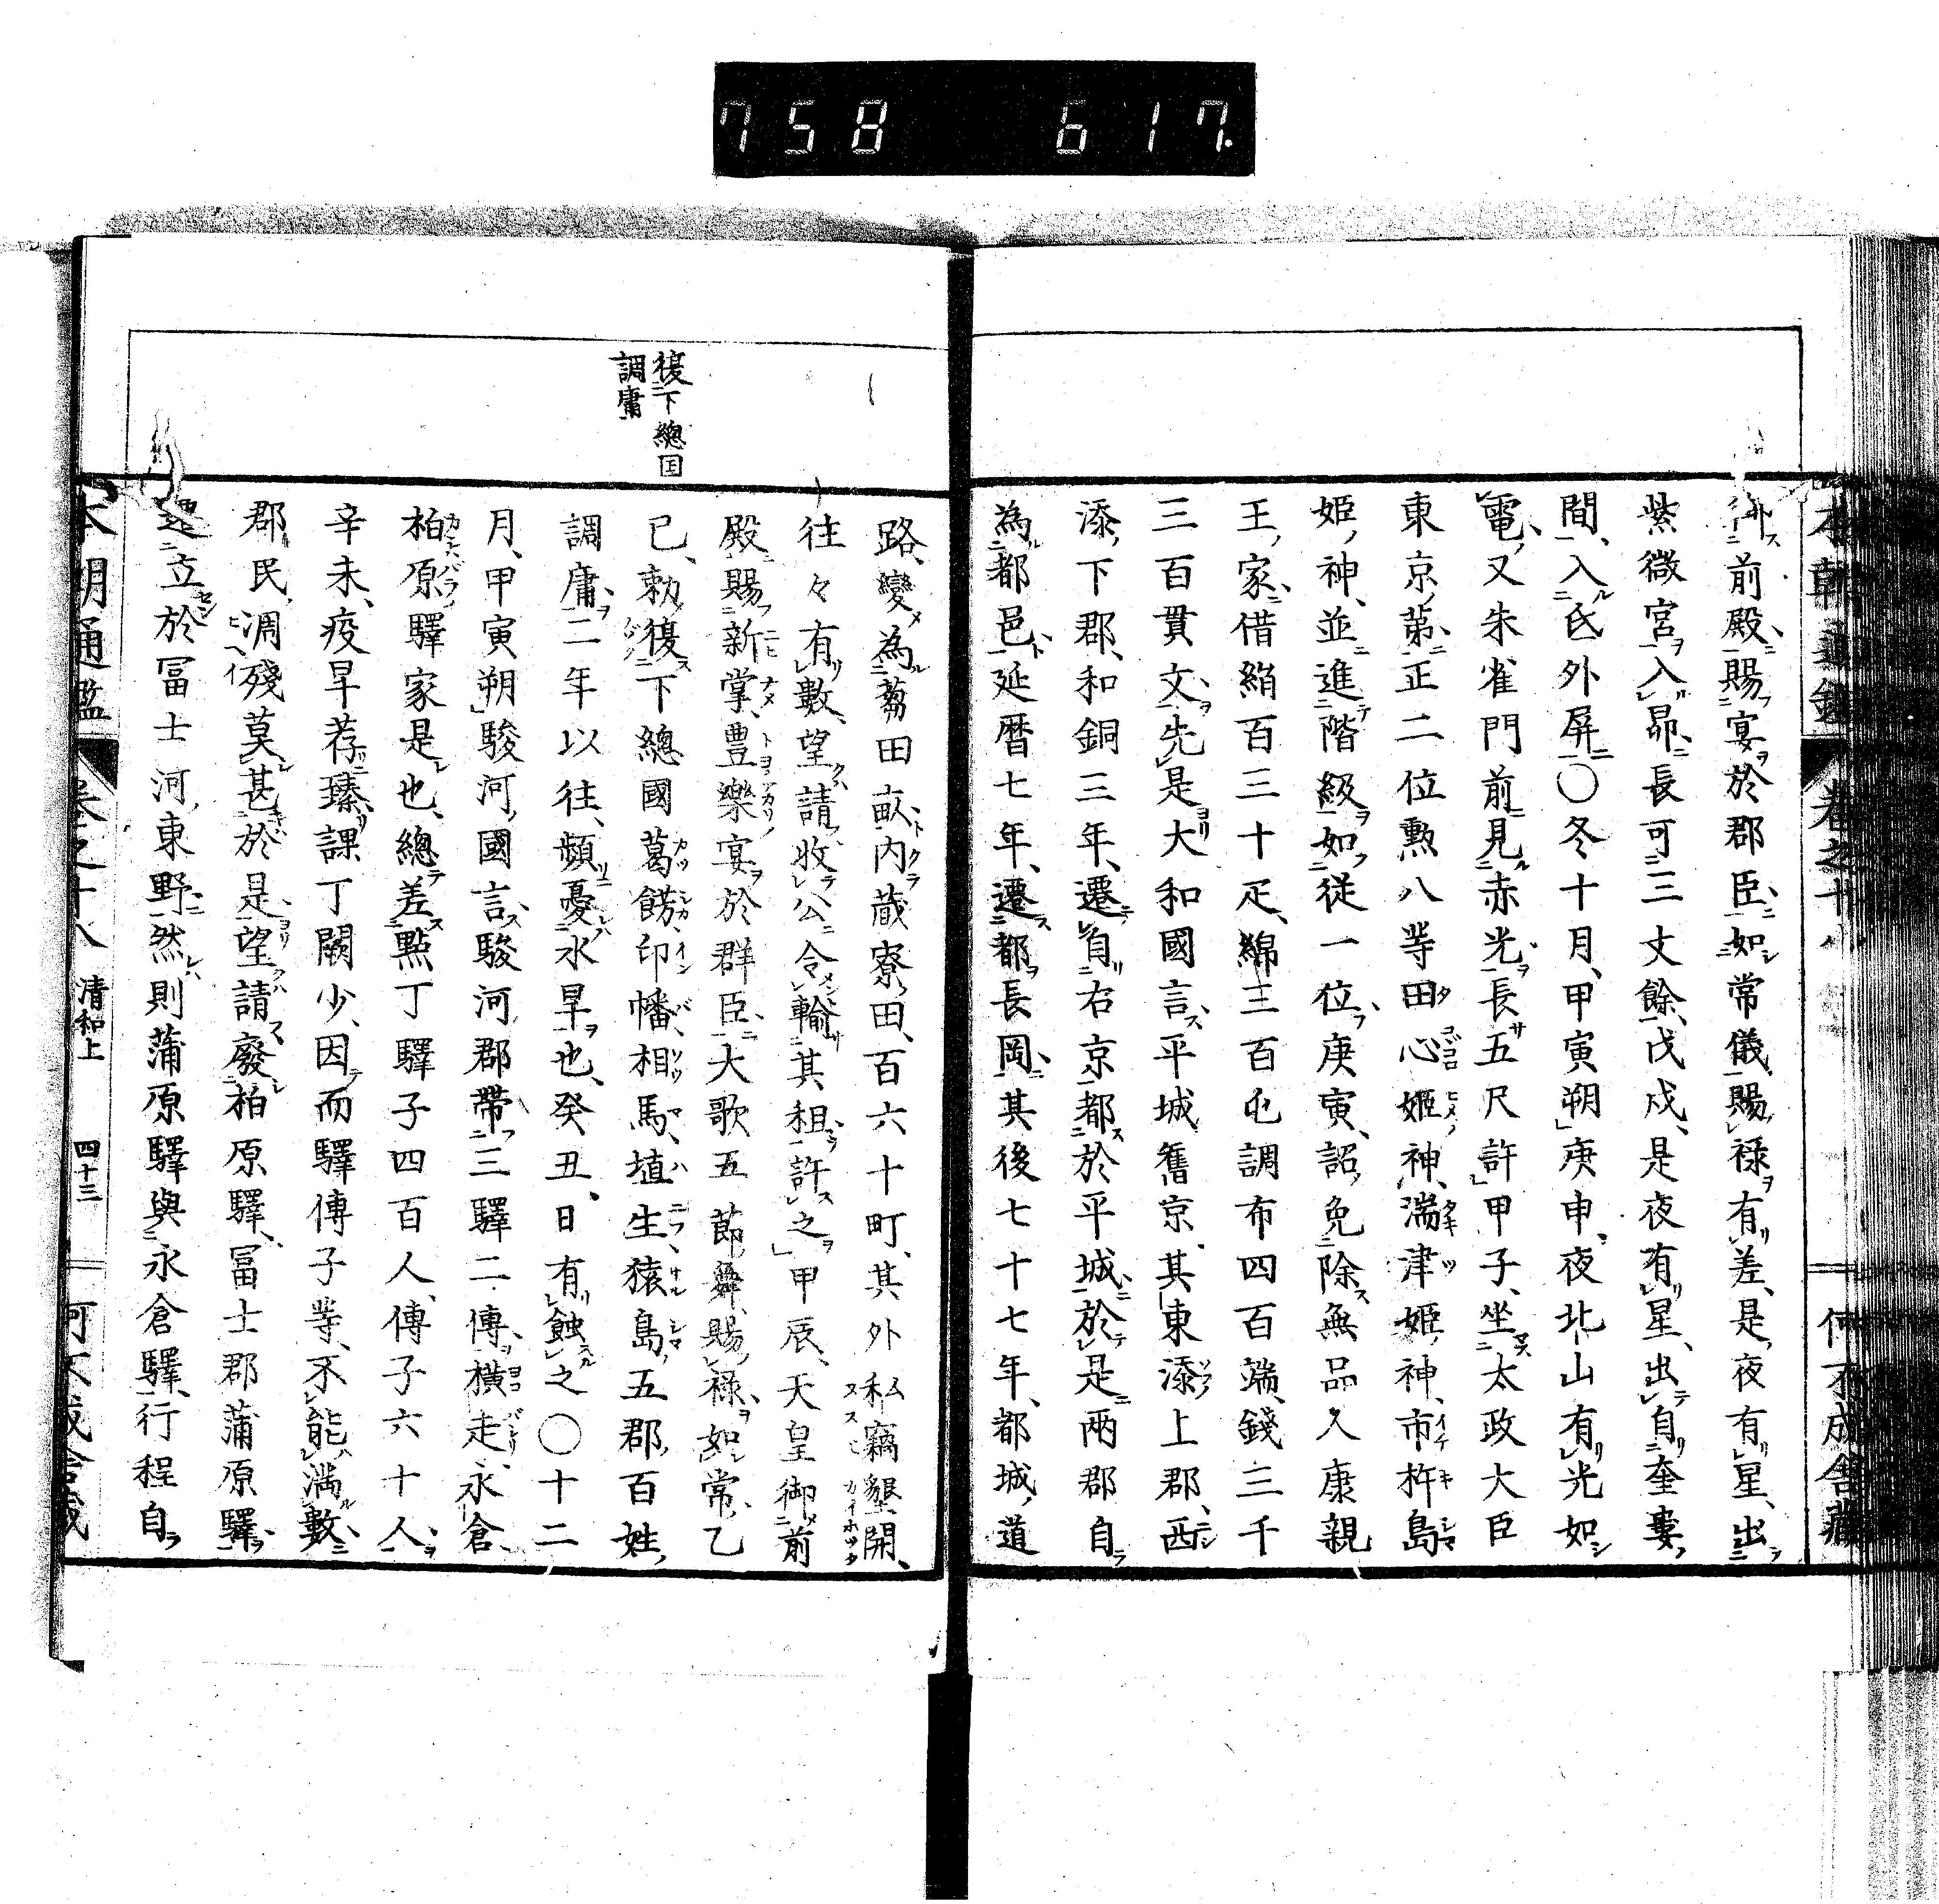 758 617.
本朝通鑑 卷之十八 何不成舍藏
御前殿賜宴於郡臣如常儀賜祿有差是夜有星出
紫微宮入昴長可三丈餘戊戌是夜有星出自奎婁
間入氐外屏〇冬十月甲寅朔庚申夜北山有光如
電又朱雀門前見赤光長五尺許甲子坐太政大臣
東京第正二位勲八等田心姬神湍津姬神市杵島
姬神並進階級如從一位庚寅詔免除無品久康親
王家借絹百三十疋綿三百屯調布四百端錢三千
三百貫文先是大和國言平城舊京其東添上郡西
添下郡和銅三年遷自右京都於平城於是兩郡自
為都邑延曆七年遷都長岡其後七十七年都城道
路變為蒭田畒內蔵寮田百六十町其外私竊墾開
往々有數望請收公令輸其租許之甲辰天皇御前
殿賜新掌豊樂宴於群臣大歌五節舞賜祿如常乙
已勅復下總國葛餝印幡相馬埴生猿島五郡百姓
調庸二年以往頻憂水旱也癸丑日有蝕之〇十二
月甲寅朔駿河國言駿河郡帶三驛二傳橫走永倉
柏原驛家是也總差點丁驛子四百人傳子六十人
辛未疫旱荐瑧課丁闕少因而驛傳子等不能満數
郡民凋殘莫甚於是望請廢柏原驛冨士郡蒲原驛
遷立於冨士河東野然則蒲原驛與永倉驛行程自
復下總国
調庸
本朝通鑑 卷之十八 清和上 四十三 何不成舍藏